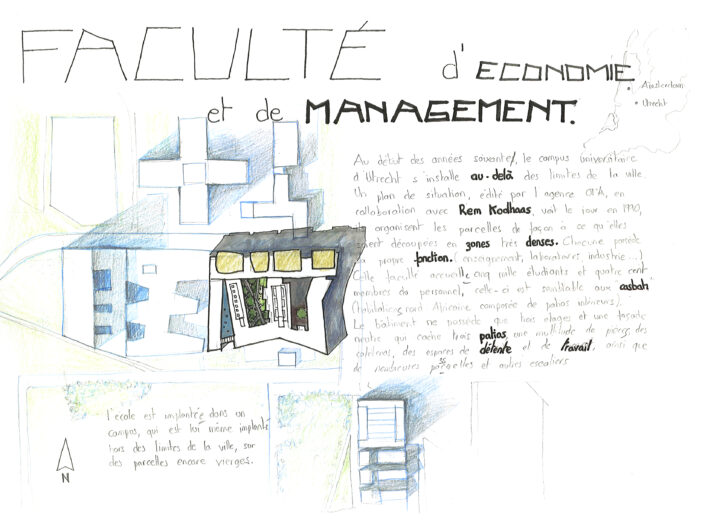 FACULTÉ
d'ECONOMIE
et de MANAGEMENT.
Amsterdam
Utrecht
Au début des années soixante, le campus universitaire
d'Utrecht s'installe au-delà des limites de la ville
Un plan de situation, édité par l'agence OMA, en
collaboration avec Rem Koolhaas, voit le jour en 1990,
organisent les parcelles de façon à ce qu'elles
soient découpées en zones très denses. Chacune possède
sa propre fonction. (enseignement, laboratoires, industrie...)
Cette faculté accueille cinq mille étudiants et quatre cent
membres du personnel, celle-ci est semblable aux casbah
(habitations nord Africaine composée de patios intérieurs).
Le bâtiment ne possède que trois étages et une façade
neutre qui cache trois patios, une multitude de des
cafétérias, des espaces de détente et de travail, ainsi que
de nombreuses passerelles et autres escaliers
l'école est implantée dans un
campus, qui est lui même implanté
hors des limites de la ville, sur
des parcelles encore vierges.
N